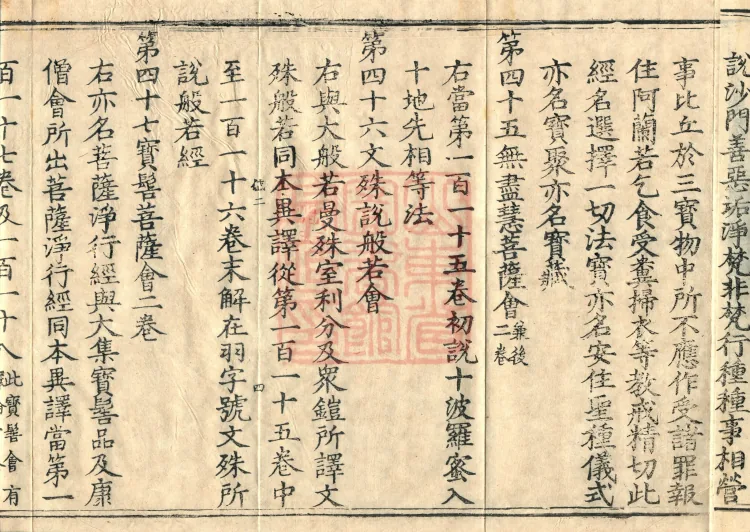 說沙門善惡垢淨梵非梵行種種事相營
事比丘於三寶物中所不應作受諸罪報
住阿蘭若乞食受糞掃衣等教戒精切此
經名選擇一切法寶亦名安住聖種儀式
亦名寶聚亦名寶藏
第四十五無盡慧菩薩會二卷兼後
右當第一百一十五卷初說十波羅蜜入
十地先相等法
第四十六文殊說般若會
右與大般若曼殊室利分及眾鎧所譯文
殊般若同本異譯從第一百一十五卷中
至一百一十六卷末解在羽字號文殊所
說般若經
第四十七寶髻菩薩會二卷
右亦名菩薩淨行經與大集寶髻品及康
僧會所出菩薩淨行經同本異譯當第一
百一十七卷及一百一十八此寶髻會有